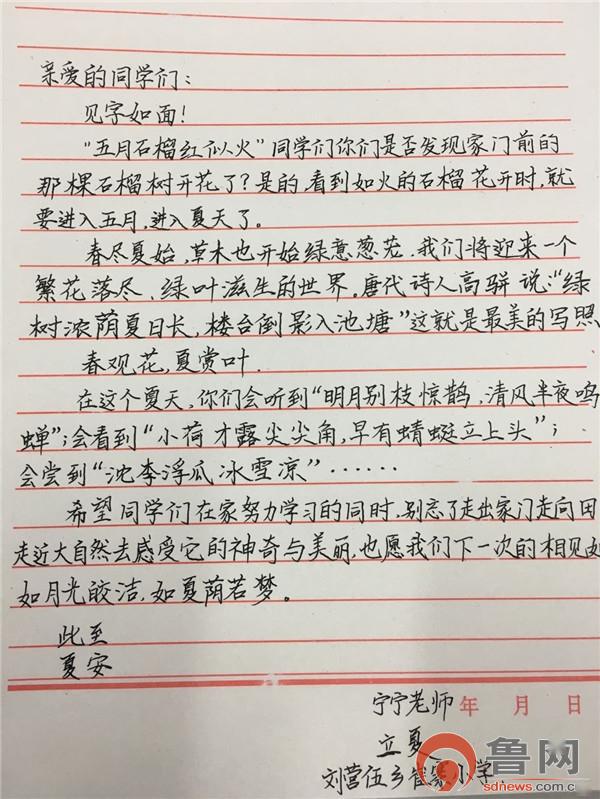 亲爱的同学们：
见字如面！
“五月石榴红似火”同学们你们是否发现家门前的
那棵石榴树开花了？是的，看到如火的石榴花开时，就
要进入五月，进入夏天了。
春尽夏始，草木也开始绿意葱茏．我们将迎来一个
繁花落尽、绿叶滋生的世界。唐代诗人高骈说：“绿
树浓荫夏日长，楼台倒影入池塘”这就是最美的写照
春观花，夏赏叶．
在这个夏天，你们会听到“明月别枝惊鹊，清风半夜鸣
蝉”；会看到“小荷才露尖尖角，早有蜻蜓立上头”；
会尝到“沈李浮瓜冰雪凉”……
希望同学们在家努力学习的同时，别忘了走出家门走向田
走近大自然去感受它的神奇与美丽，也愿我们下一次的相见如
如月光皎洁，如夏荫若梦。
此至
夏安
宁宁老师 年 月 日
立夏
刘营伍乡崔家小学
鲁网
sdnews.com.c